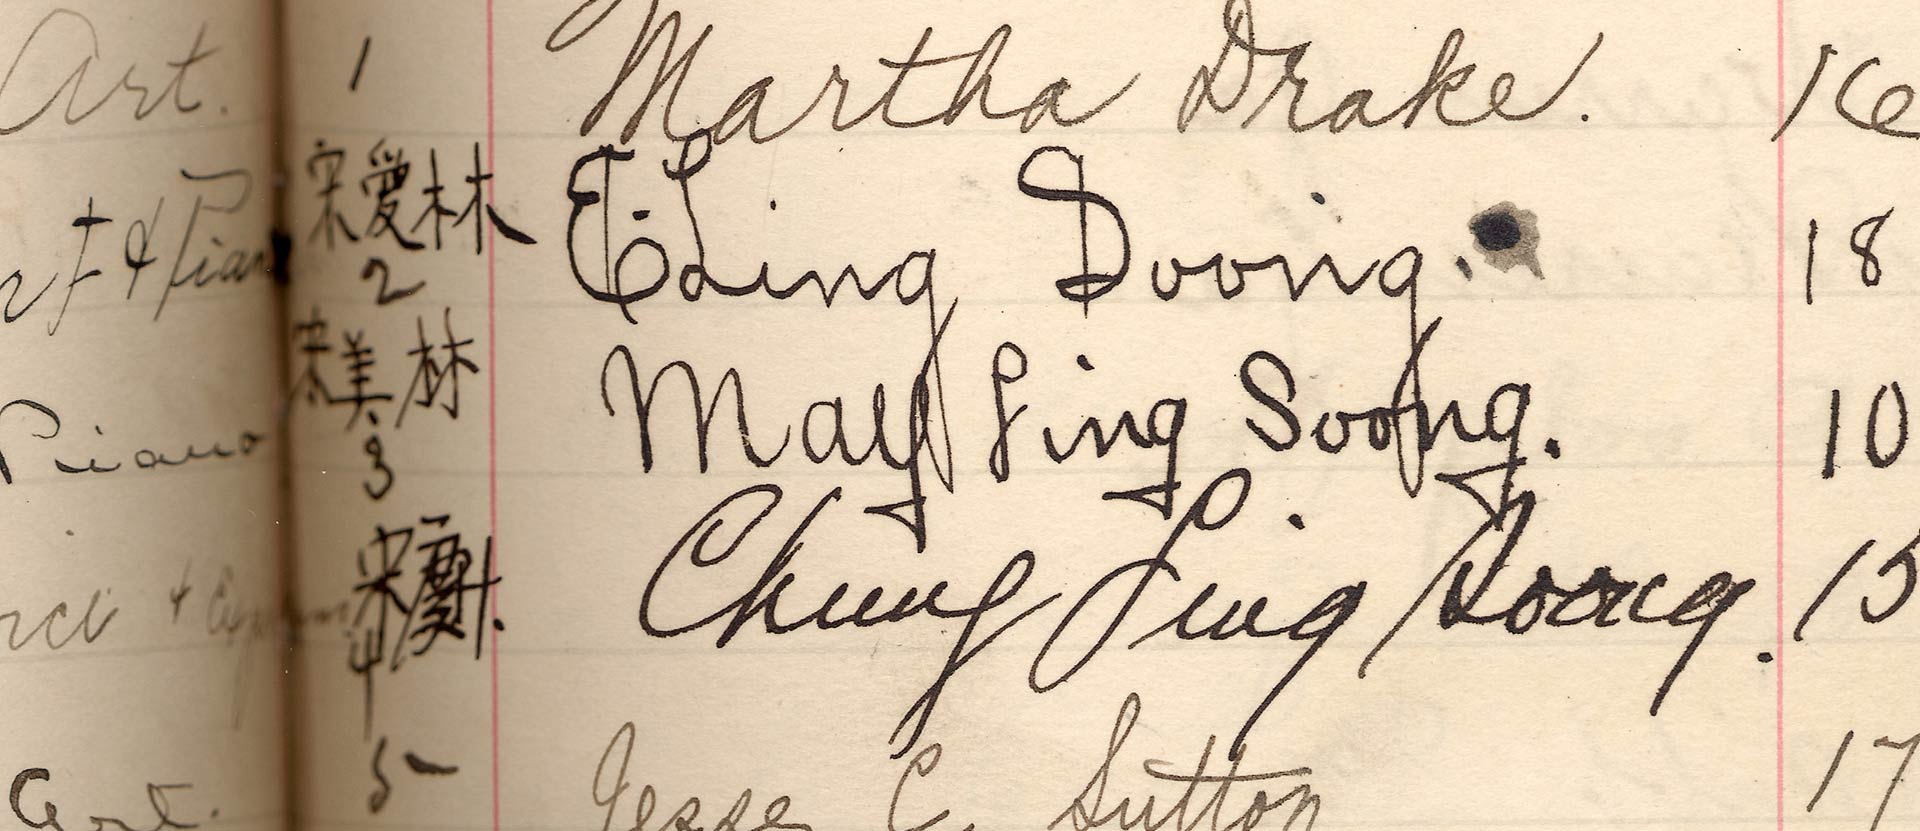 Art. 1 Martha Drake. 16
& Pian 宋愛林 2 E. Ling Soong. 18
Piano 宋美林 3 May Ling Soong. 10
宋慶林. 4 Chung Ling Soong. 15
Art. 5 Jesse C. Sutton 17